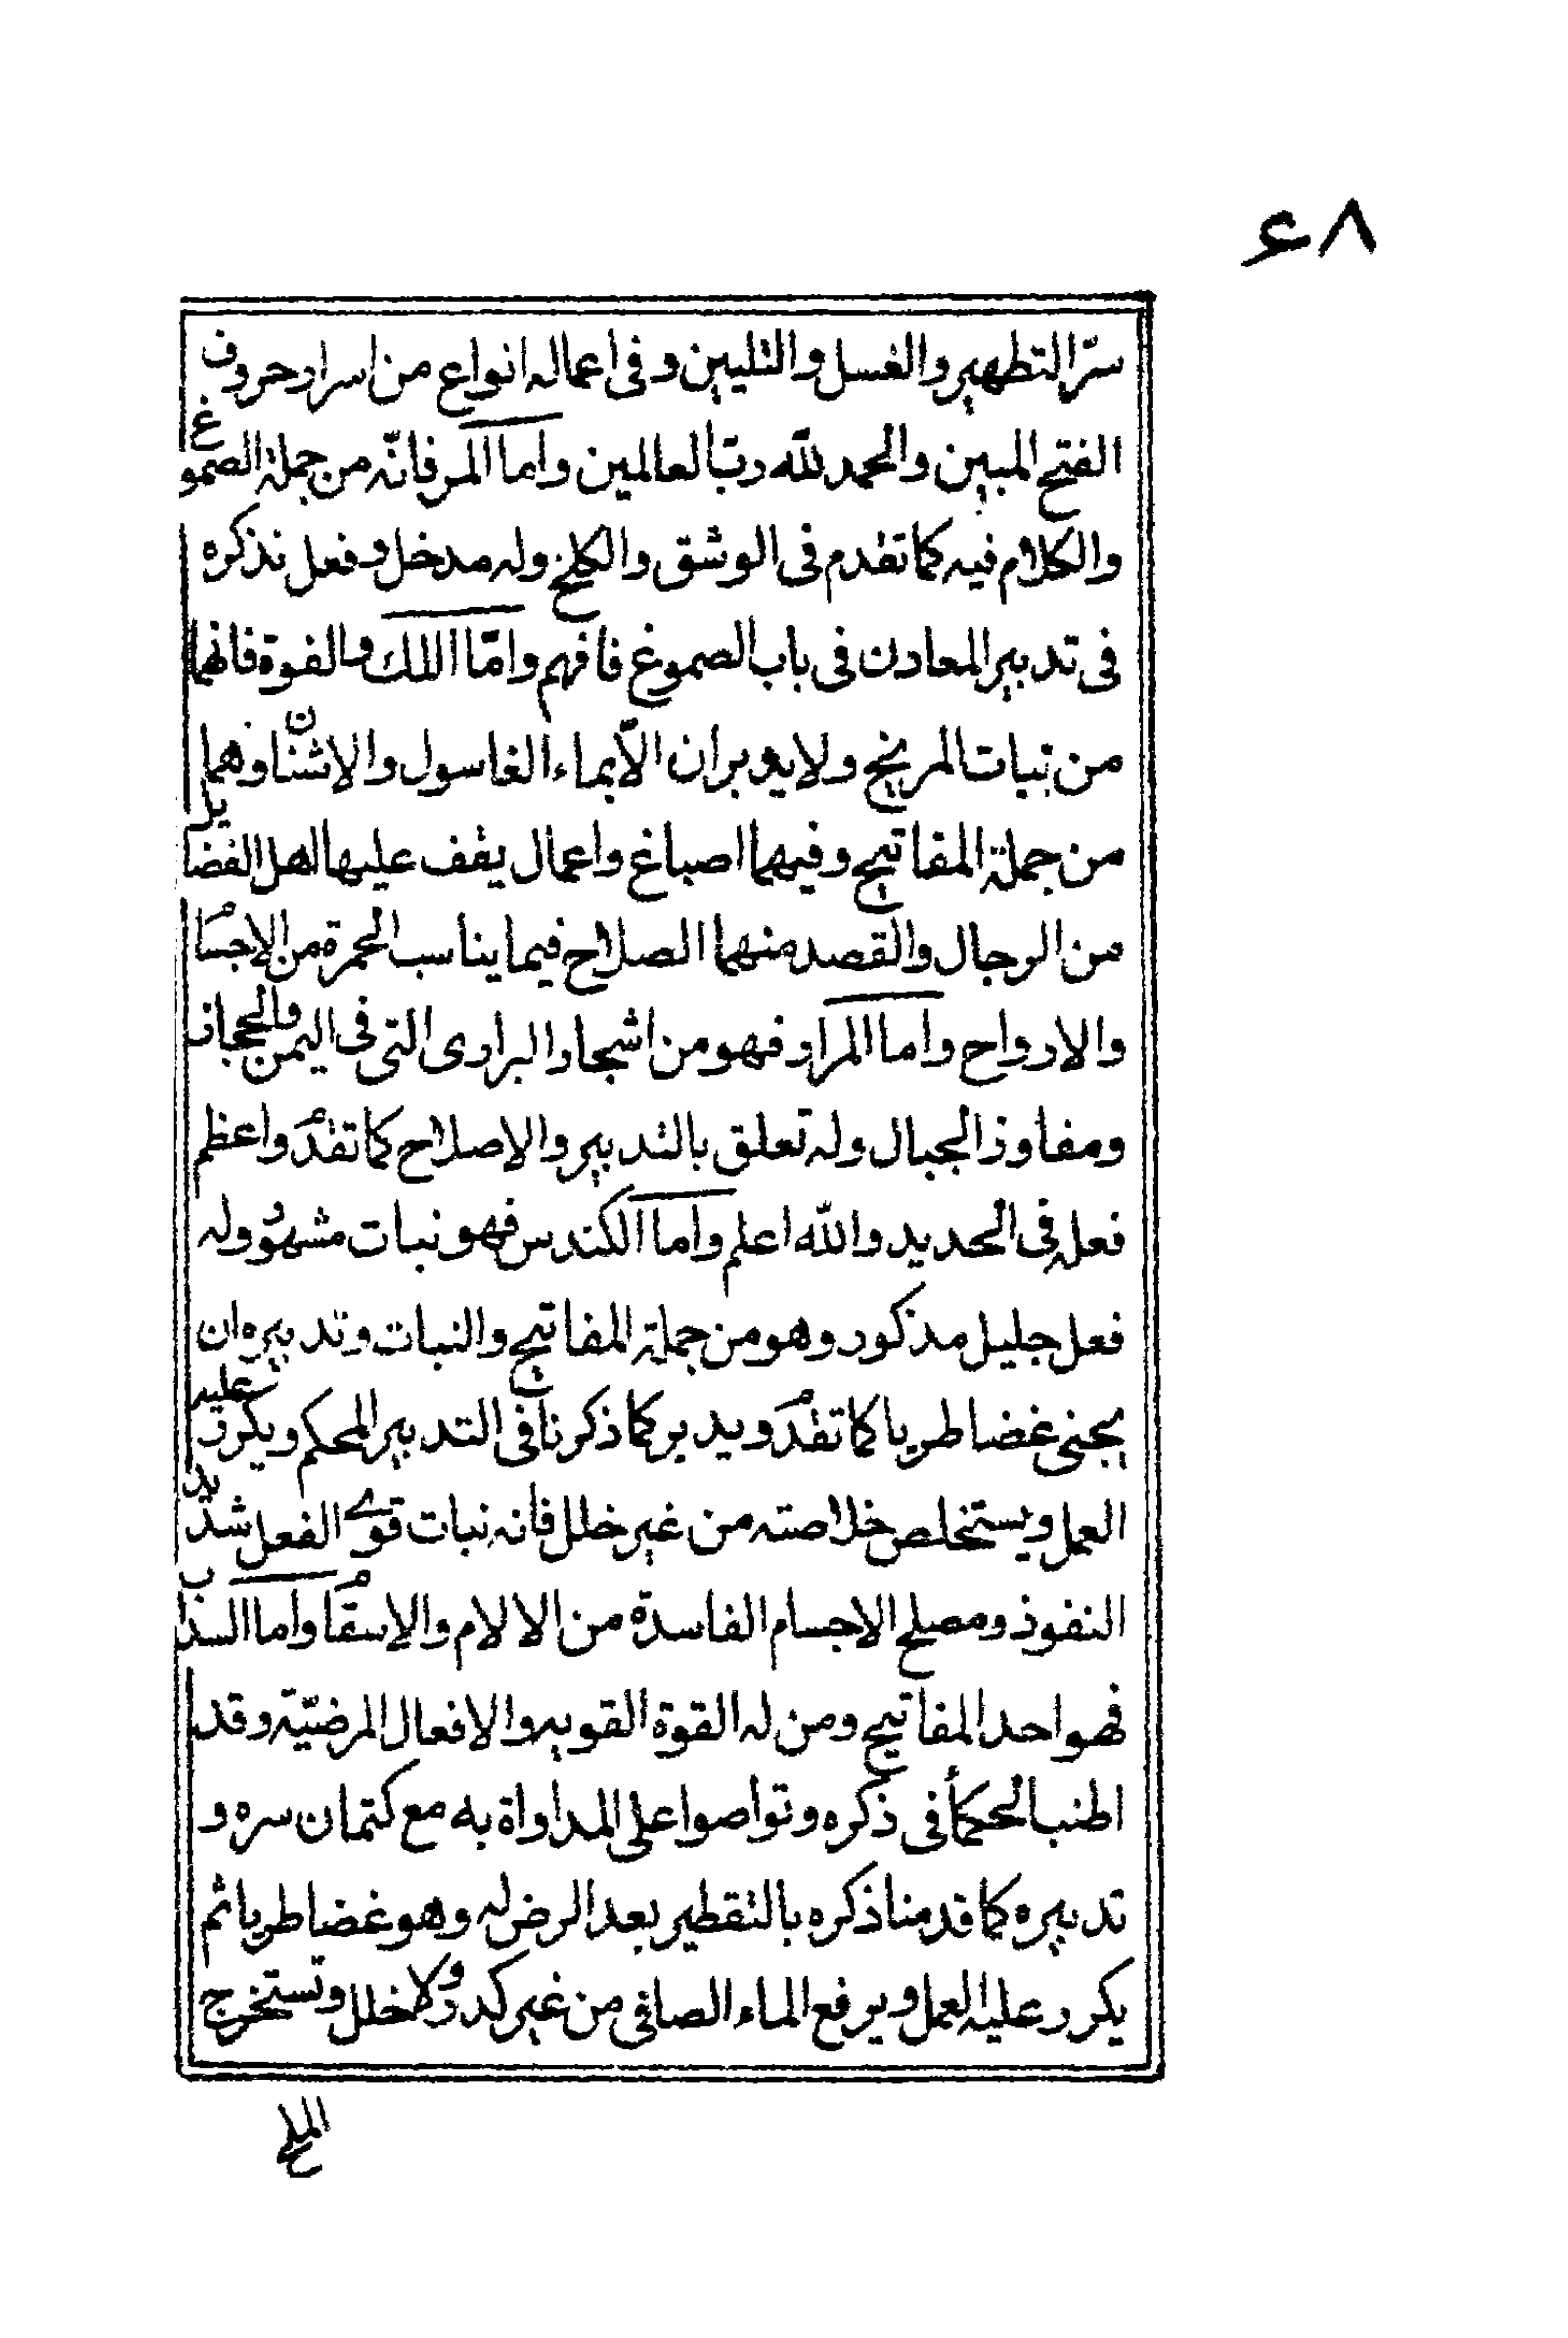 ٤٨
سرّ التطهير والغسل والتليين وفى اعماله انواع من اسرار حروف
الفتح المبين والحمد للّه ربّ العالمين واما المر فانّه من جملة الصموغ
والكلام فيه كما تقدم فى الوشق والكلخ وله مدخل وفعل نذكره
فى تدبير المعادن فى باب الصموغ فافهم وامّا اللك والفوة فانهما
من نبات المريخ ولا يدبران الّا بماء الغاسول والاشنان وهما
من جملة المفاتيح وفيهما اصباغ واعمال يقف عليها اهل الفضايل
من الرجال والقصد منهما الصلاح فيما يناسب الحمرة من الاجسام
والارواح واما المرار فهو من اشجار البرارى التى فى اليمن والحجاز
ومفاوز الجبال وله تعلق بالتدبير والاصلاح كما تقدم واعظم
فعله فى الحديد والله اعلم واما الكندس فهو نبات مشهور وله
فعل جليل مذكور وهو من جملة المفاتيح والنبات وتدبيره ان
يجنى غضا طريا كما تقدم ويدبر كما ذكرنا فى التدبير المحكم ويكرر عليه
العمل ويستخلص خلاصته من غير خلل فانه نبات قوى الفعل شديد
النفوذ ومصلح الاجسام الفاسدة من الالام والاسقام واما السذاب
فهو احد المفاتيح ومن له القوة القويه والافعال المرضيّة وقد
اطنب الحكمأ فى ذكره وتواصوا على المداواة به مع كتمان سره و
تدبيره كما قدمنا ذكره بالتقطير بعد الرض له وهو غضا طريا ثم
يكرر عليه العمل ويرفع الماء الصافى من غير كدر ولا خلل وتستخرج
الملح